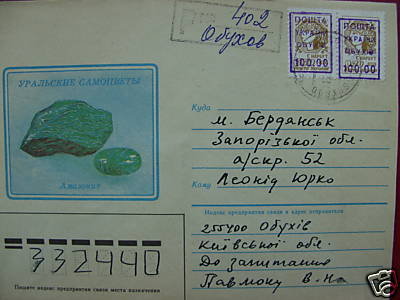 402
Обухов
ПОШТА
УКРАЇНА
ОБУХІВ
100.00
ПОШТА
УКРАЇНА
ОБУХІВ
100.00
УРАЛЬСКИЕ САМОЦВЕТЫ
Амазонит
Куда
м. Бердянськ
Запорізької обл.
а/скр. 52
Кому
Леонід Юрко
Индекс предприятия связи и адрес отправителя
255400 Обухів
Київської обл.
До запитання
332440
Пишите индекс предприятия связи места назначения